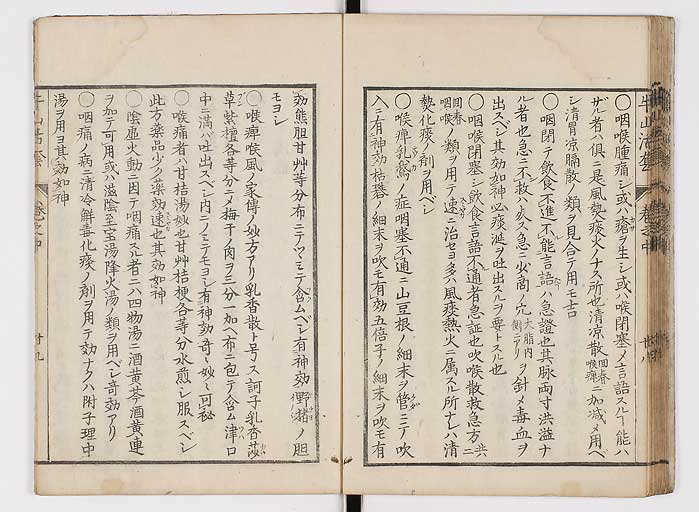 〇咽喉腫痛シ或ハ瘡ヲ生シ或ハ喉閉塞メ言語スルヿ能ハ
ザル者ハ俱ニ是風熱痰火ノナス所也清凉散回春喉痺ニ加減メ用ベ
シ清胃凉膈散ノ類ヲ見合テ用モ吉
〇咽閉テ飲食不進不能言語ハ急證也其脉両寸洪溢ナ
ル者也急ニ不救ハ亥ス急ニ少商ノ穴大指内側ニアリヲ針メ毒血ヲ
出スベシ其効如神必痰涎ヲ吐出スルヲ要トスル也
〇咽喉閉塞シ飲食言語不通者急証也吹喉散救急方
回春咽喉ノ類ヲ用テ速ニ治セヨ多ハ風痰熱火ニ属スル所ナレハ清
熱化痰ノ剤ヲ用ベシ
〇喉痺乳鵞ノ症咽塞不通ニ山豆根ノ細末ヲ管ニテ吹
入ニ有神効枯礬ノ細末ヲ吹モ有効五倍子ノ細末ヲ吹モ有
効熊胆甘艸等分布ニテツヽミテ含ムベシ有神効野猪ノ胆
モヨシ
〇喉痺喉風ノ家傳ノ妙方アリ乳香散ト号ス訶子乳香莎
草紫檀各等分ニメ梅干ノ肉ヲ三分一加ヘ布ニ包テ含ム津口
中ニ満バ吐出スベシ内ニノミテモヨシ有神効奇〻妙〻可秘
〇喉痛者ハ甘桔湯妙也甘艸桔梗各等分水煎シ服スベシ
此方薬品少ク薬効速也其効如神
〇陰虚火動ニ因テ咽痛スル者ニハ四物湯ニ酒黄芩酒黄連
ヲ加テ可用或ハ滋陰至宝湯降火湯ノ類ヲ用ベシ奇効アリ
〇咽痛ノ病ニ清冷解毒化痰ノ剤ヲ用テ効ナクハ附子理中
湯ヲ用ヨ其効如神